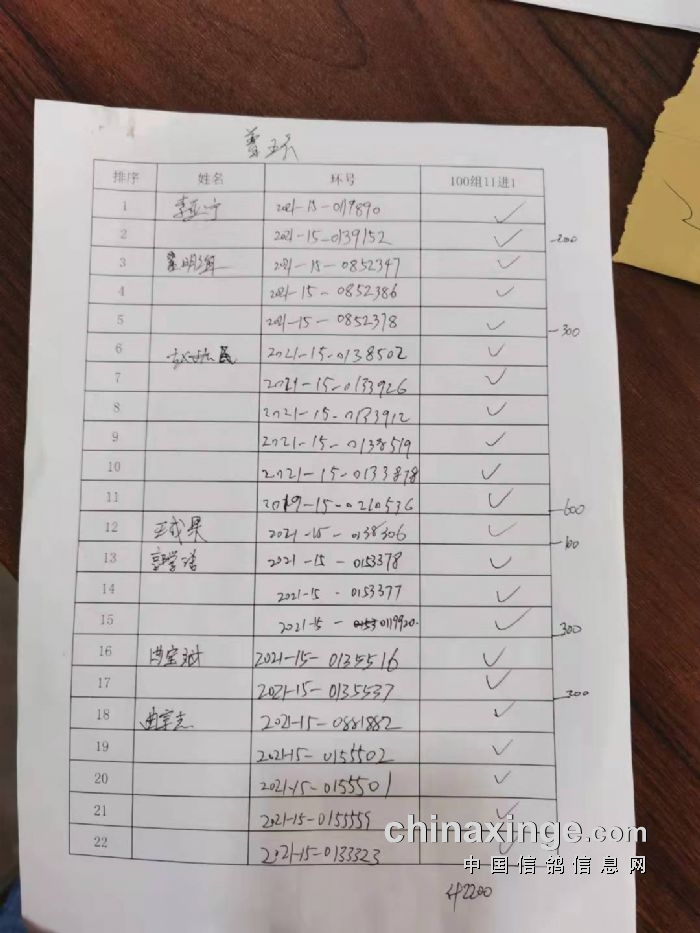 排序 姓名 环号 100组11进1
1 李亚宁 2021-15-0117890 ✓
2 2021-15-0139152 ✓ 200
3 明 2021-15-0852347 ✓
4 2021-15-0852386 ✓
5 2021-15-0852378 ✓ 300
6 赵 民 2021-15-0138502 ✓
7 2021-15-0133926 ✓
8 2021-15-0133912 ✓
9 2021-15-0138519 ✓
10 2021-15-0133878 ✓
11 2019-15-0210536 ✓ 600
12 王成果 2021-15-0138306 ✓ 100
13 郭学 2021-15-0153378 ✓
14 2021-15-0153377 ✓
15 2021-15-0119920 ✓ 300
16 宝 2021-15-0135516 ✓
17 2021-15-0135537 ✓ 300
18 志 2021-15-0881882 ✓
19 2021-15-0155502 ✓
20 2021-15-0155501 ✓
21 2021-15-0155559 ✓
22 2021-15-0133323 ✓
chinaxinge.com
中国信鸽信息网
2200